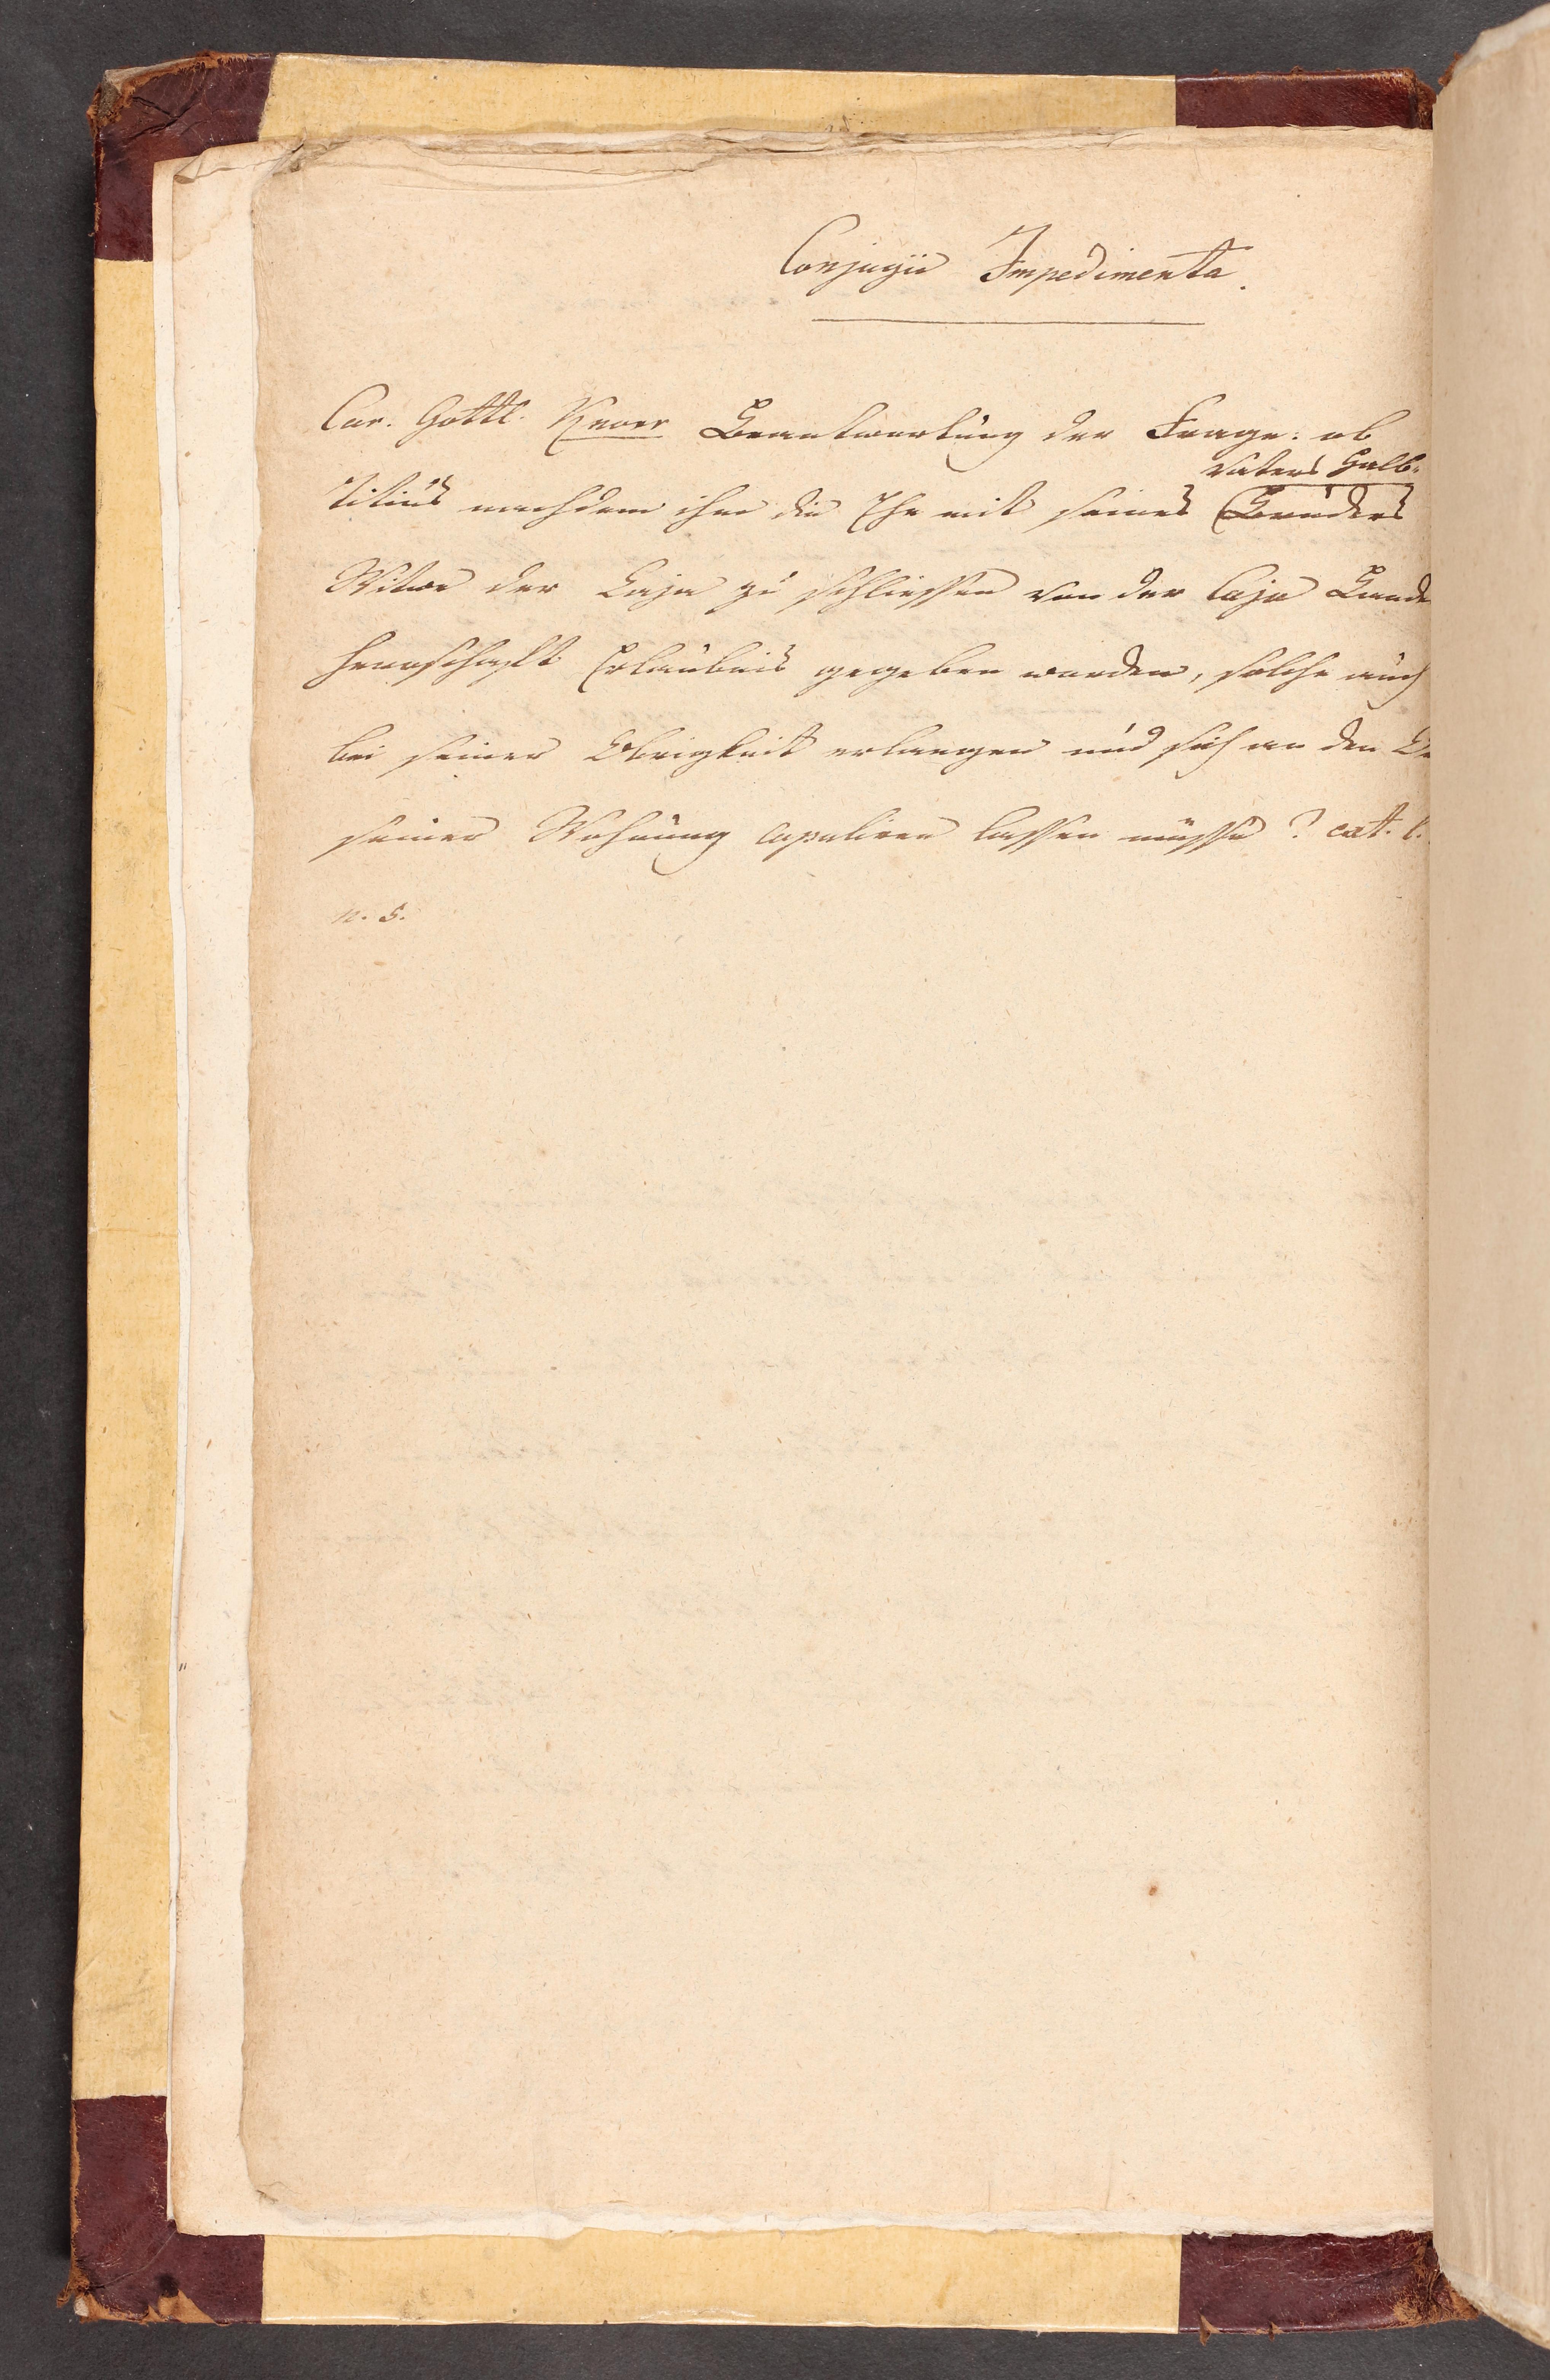 Conjugii Impedimenta.
Car. Gottl. Knorr Beantwortung der Frage: ob
Vaters Halb-
Titius nachdem ihm die Ehe mit seines Bruders
Witwe der Caja zu schliessen von der Caja Lande
herrschaft Erlaubnis gegeben worden, solche auch
bei seiner Obrigkeit erlangen und sich an den
seiner Wohnung copuliren lassen müsse? cat. l.
n. 5.